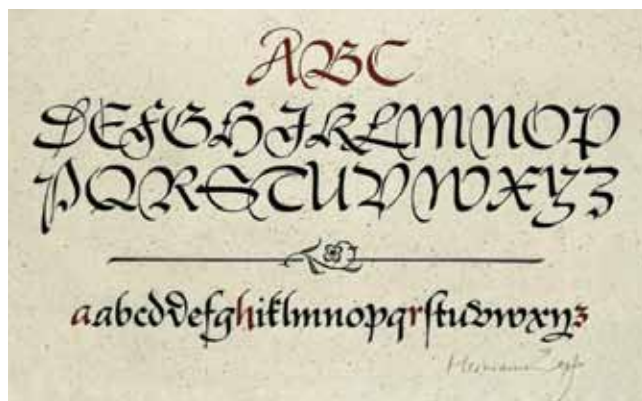 ABC
DEFGHJKLMNOP
PQRSTUVWXYZ
aabcddefghiklmnopqrſtuvwxyz
Hermann Zapf